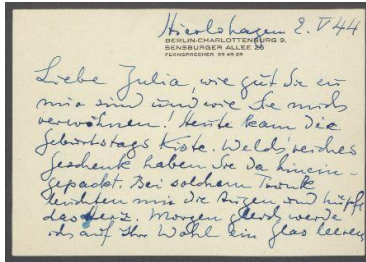 Hierlshagen 2. V 44
BERLIN-CHARLOTTENBURG 9,
SENSBURGER ALLEE 26
FERNSPRECHER 99 49 29
Liebe Julia, wie gut Sie zu
mir sind und wie Sie mich
verwöhnen! Heute kam die
Geburtstags Kiste. Welch' reiches
Geschenk haben Sie da hinein-
gepackt. Bei solchem Trunk
leuchten mir die Augen und hüpft
das Herz. Morgen gleich werde
ich auf Ihr Wohl ein Glas leeren